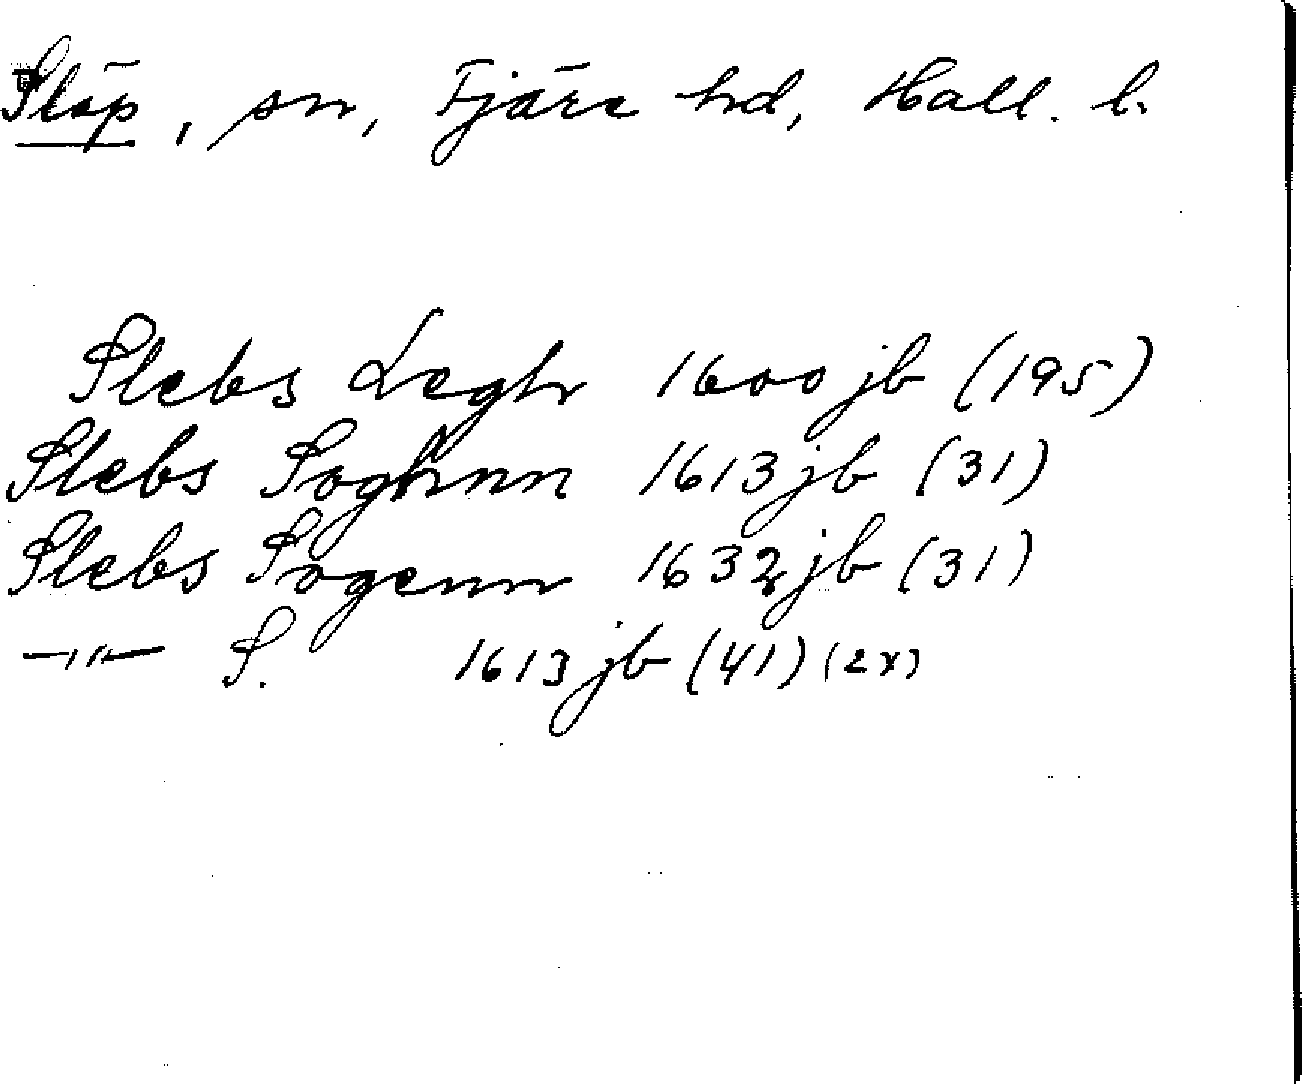 Släp, sn, Fjäre hd, Hall. l.
Slebs Legh 1600 jb (195)
Slebs Soghnn 1613 jb (31)
Slebs Sogenn 1632 jb (31)
—"— S. 1613 jb (41) (2x)